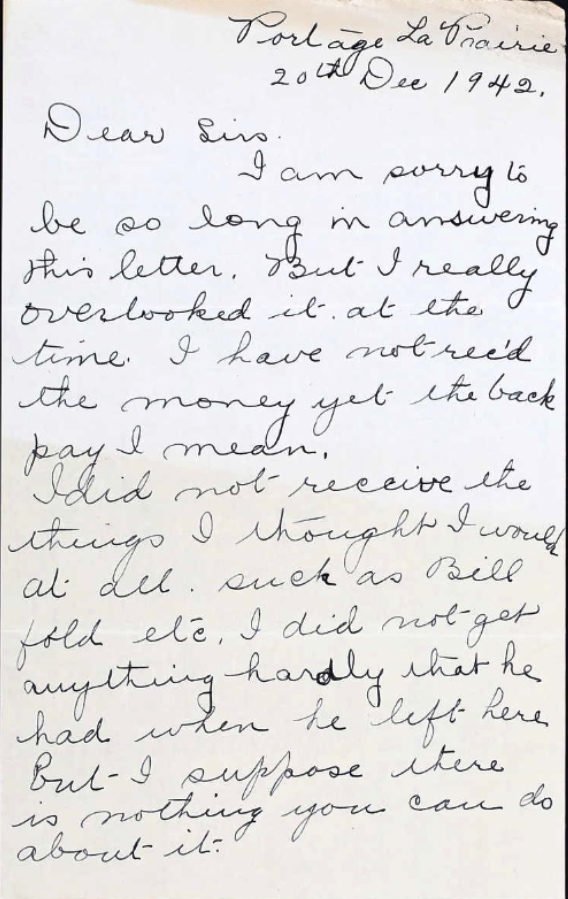 Portage La Prairie
20th Dec 1942.
Dear Sirs.
I am sorry to
be so long in answering
this letter. But I really
overlooked it. at the
time. I have not rec'd
the money yet the back
pay I mean.
I did not receive the
things I thought I would
at all. such as Bill
fold etc. I did not get
anything hardly that he
had when he left here
But I suppose there
is nothing you can do
about it.